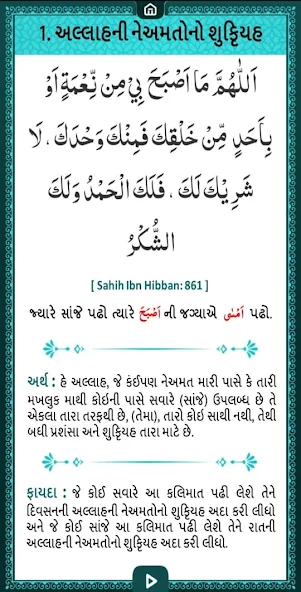 1. અલ્લાહની નેઅમતોનો શુક્રિયહ
اَللّٰهُمَّ مَا اَصْبَحَ بِيْ مِنْ نِّعْمَةٍ اَوْ
بِاَحَدٍ مِّنْ خَلْقِكَ فَمِنْكَ وَحْدَكَ ، لَا
شَرِيْكَ لَكَ ، فَلَكَ الْحَمْدُ وَلَكَ
الشُّكْرُ
[ Sahih Ibn Hibban: 861 ]
જ્યારે સાંજે પઢો ત્યારે اَصْبَحَ ની જગ્યાએ اَمْسٰى પઢો.
અર્થ : હે અલ્લાહ, જે કંઈપણ નેઅમત મારી પાસે કે તારી
મખલુક માથી કોઇની પાસે સવારે (સાંજે) ઉપલબ્ધ છે તે
એકલા તારા તરફથી છે, (તેમા), તારો કોઇ સાથી નથી, તેથી
બધી પ્રશંસા અને શુક્રિયહ તારા માટે છે.
ફાયદા : જે કોઈ સવારે આ કલિમાત પઢી લેશે તેને
દિવસની અલ્લાહની નેઅમતોનો શુક્રિયહ અદા કરી લીધો
અને જે કોઈ સાંજે આ કલિમાત પઢી લેશે તેને રાતની
અલ્લાહની નેઅમતોનો શુક્રિયહ અદા કરી લીધો.